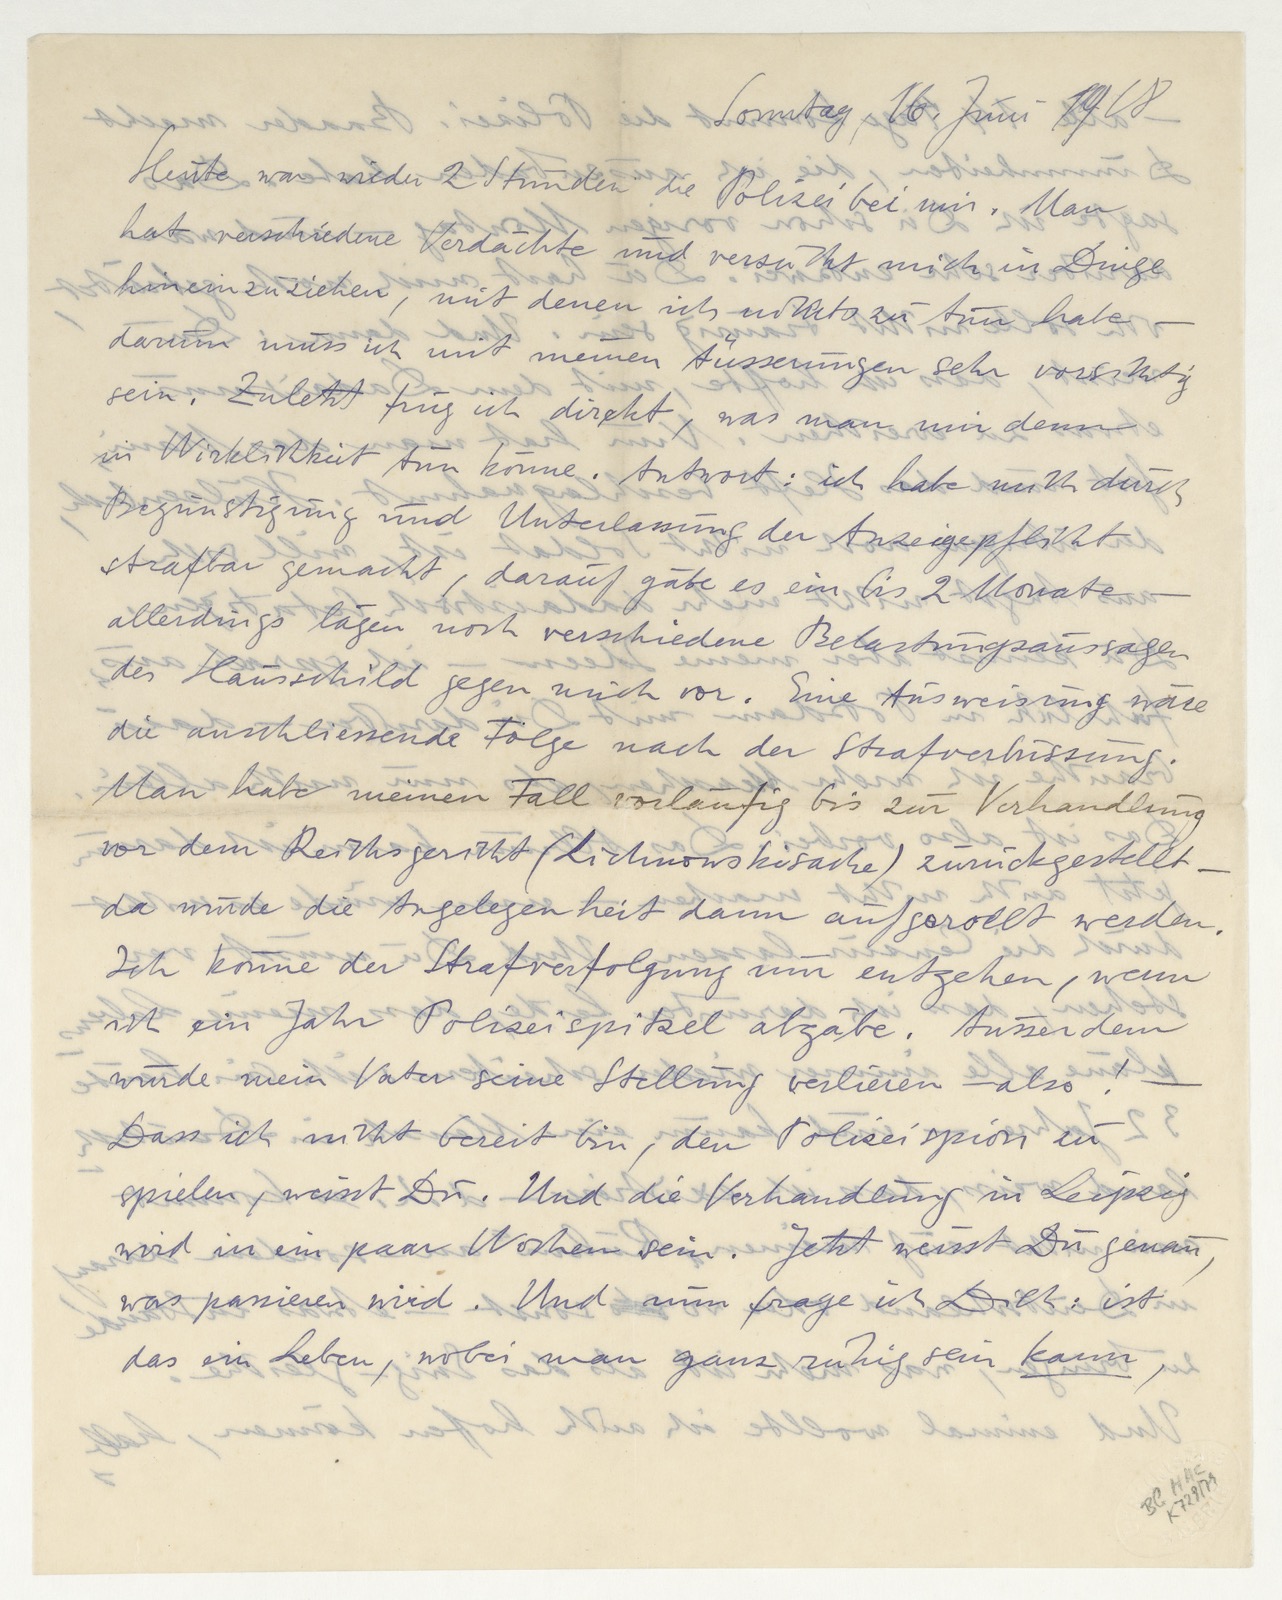 Sonntag, 16. Juni 1918
Heute war wieder 2 Stunden die Polizei bei mir. Man
hat verschiedene Verdächte und versucht mich in Dinge
hineinzuziehen, mit denen ich nichts zu tun habe —
darum muss ich mit meinen Äusserungen sehr vorsichtig
sein. Zuletzt frug ich direkt, was man mir denn
in Wirklichkeit tun könne. Antwort: ich habe mich durch
Begünstigung und Unterlassung der Anzeigepflicht
strafbar gemacht, darauf gäbe es ein bis 2 Monate —
allerdings lägen noch verschiedene Belastungsaussagen
des Hausschild gegen mich vor. Eine Ausweisung wäre
die anschliessende Folge nach der Strafverbüssung.
Man habe meinen Fall vorläufig bis zur Verhandlung
vor dem Reichsgericht (Lichnowskisache) zurückgestellt —
da würde die Angelegenheit dann aufgerollt werden.
Ich könne der Strafverfolgung nur entgehen, wenn
ich ein Jahr Polizeispitzel abgäbe. Ausserdem
würde mein Vater seine Stellung verlieren — also! —
Dass ich nicht bereit bin, den Polizeispion zu
spielen, weisst Du. Und die Verhandlung in Leipzig
wird in ein paar Wochen sein. Jetzt weisst Du genau,
was passieren wird. Und nun frage ich Dich: ist
das ein Leben, wobei man ganz ruhig sein kann,
BC HAC
K 729/79